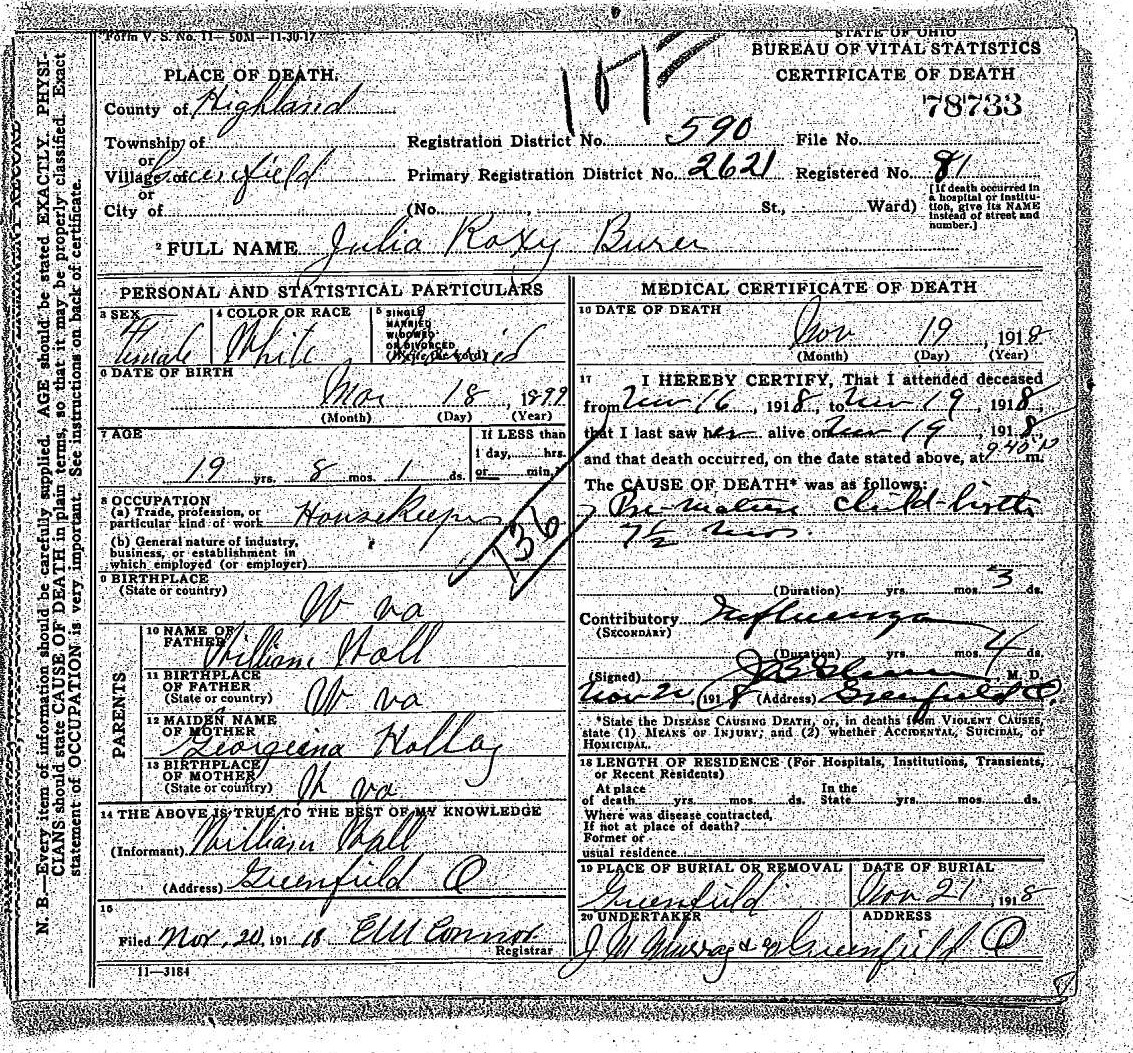 Form V. S. No. 11—50M—11-30-17
107
STATE OF OHIO
BUREAU OF VITAL STATISTICS
CERTIFICATE OF DEATH
78733
PLACE OF DEATH.
County of Highland
Township of
or
Village of Greenfield
or
City of
Registration District No. 590
File No.
Primary Registration District No. 2621
Registered No. 81
(No. , St., Ward)
[If death occurred in
a hospital or institu-
tion, give its NAME
instead of street and
number.]
2 FULL NAME Julia Roxy Burer
PERSONAL AND STATISTICAL PARTICULARS
3 SEX
Female
4 COLOR OR RACE
White
5 SINGLE
MARRIED
WIDOWED
OR DIVORCED
(Write the word)
Married
6 DATE OF BIRTH
Mar 18, 1899
(Month) (Day) (Year)
7 AGE
19 yrs. 8 mos. 1 ds.
If LESS than
1 day, hrs.
or min.?
8 OCCUPATION
(a) Trade, profession, or
particular kind of work Housekeeper
(b) General nature of industry,
business, or establishment in
which employed (or employer)
136
9 BIRTHPLACE
(State or country)
W va
PARENTS
10 NAME OF
FATHER
William Hall
11 BIRTHPLACE
OF FATHER
(State or country) W va
12 MAIDEN NAME
OF MOTHER
Georgeina
13 BIRTHPLACE
OF MOTHER
(State or country) W va
14 THE ABOVE IS TRUE TO THE BEST OF MY KNOWLEDGE
(Informant) William Hall
(Address) Greenfield O
15
Filed Nov. 20, 191 18 E W Connor
Registrar
11—3184
MEDICAL CERTIFICATE OF DEATH
16 DATE OF DEATH
Nov 19, 1918
(Month) (Day) (Year)
17 I HEREBY CERTIFY, That I attended deceased
from Nov 16, 1918, to Nov 19, 1918,
that I last saw her alive on Nov 19, 1918,
and that death occurred, on the date stated above, at 9:40 m.
The CAUSE OF DEATH* was as follows:
Pre-mature child-birth
7½ mos.
(Duration) yrs. mos. 3 ds.
Contributory Influenza
(SECONDARY)
(Duration) yrs. mos. 4 ds.
(Signed) M. D.
Nov 20, 1918 (Address) Greenfield O.
*State the DISEASE CAUSING DEATH, or, in deaths from VIOLENT CAUSES,
state (1) MEANS OF INJURY; and (2) whether ACCIDENTAL, SUICIDAL, or
HOMICIDAL.
18 LENGTH OF RESIDENCE (For Hospitals, Institutions, Transients,
or Recent Residents)
At place
of death yrs. mos. ds.
In the
State yrs. mos. ds.
Where was disease contracted,
If not at place of death?
Former or
usual residence
19 PLACE OF BURIAL OR REMOVAL
Greenfield
DATE OF BURIAL
Nov 21, 1918
20 UNDERTAKER
J M Murray &
ADDRESS
Greenfield O
N. B.—Every item of information should be carefully supplied. AGE should be stated EXACTLY. PHYSI-
CIANS should state CAUSE OF DEATH in plain terms, so that it may be properly classified. Exact
statement of OCCUPATION is very important. See instructions on back of certificate.